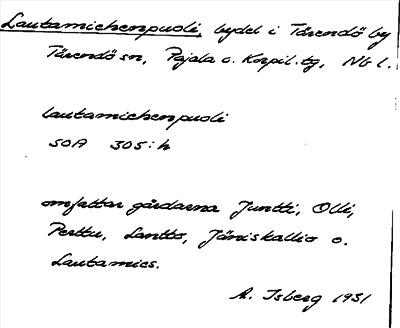 Lautamichenpuoli, bydel i Tärendö by
Tärendö sn, Pajala o. Korpil. tg, Nb l.
lautamichenpuoli
SOA 305:h
omfattar gårdarna Juntti, Olli,
Perttu, Lantto, Jäniskallio o.
Lautamies.
A. Isberg 1931